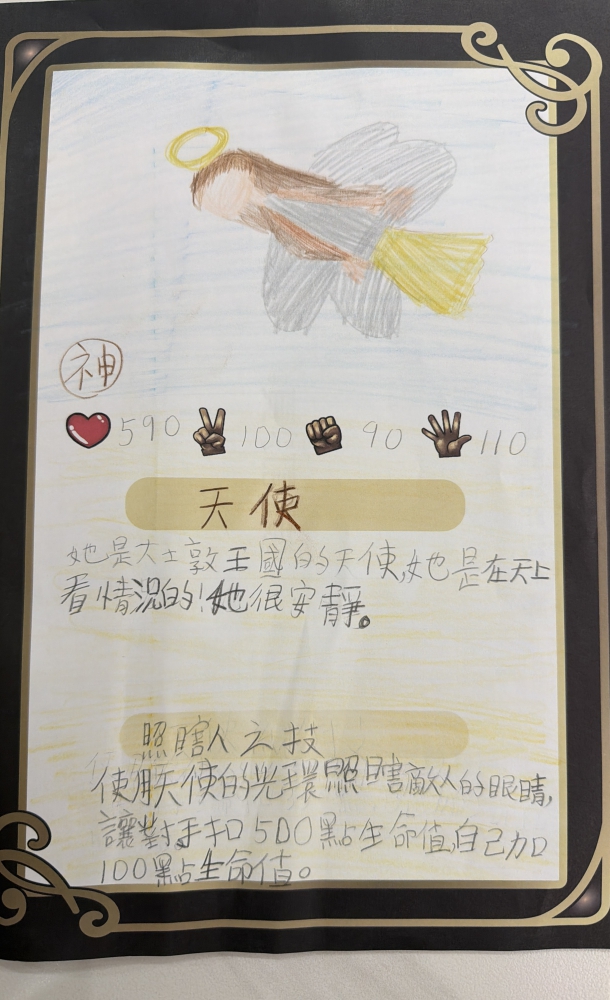 神
590 100 90 110
天使
她是大土敦王國的天使,她是在天上
看情況的!她很安靜。
照瞎人之技
使用天使的光環照瞎敵人的眼睛,
讓對手扣500點生命值,自己加
100點生命值。